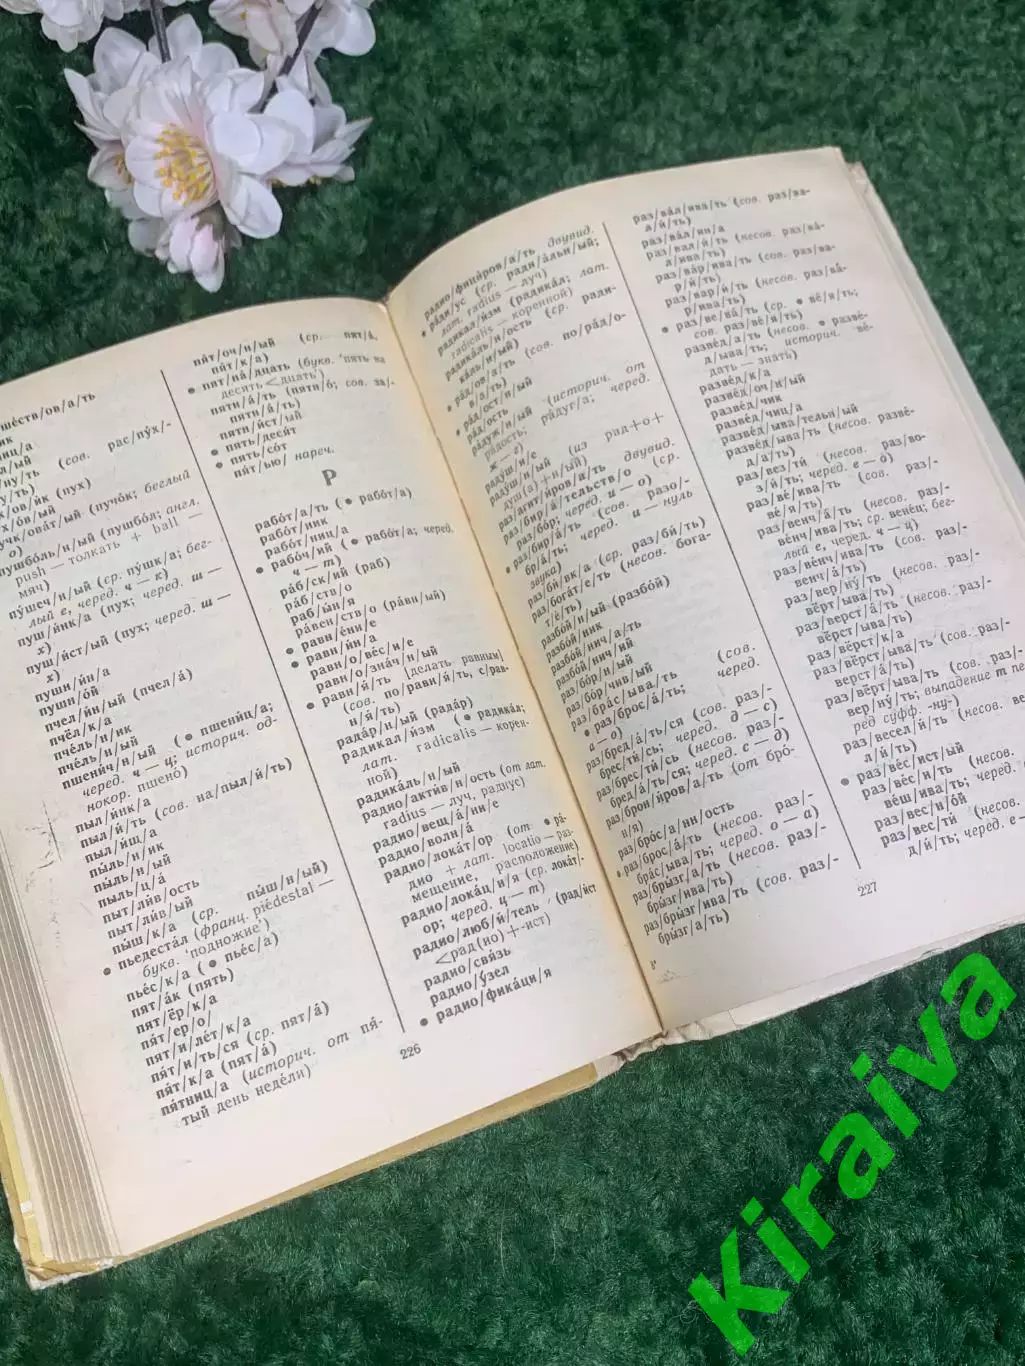 шéств/ов/а/ть
(сов. рас/пу́х/-
/о́в/ый
(пучо́к; беглый
о)
пушбо́ль/н/ый (пушбол; англ.
push — толкать + ball —
мяч)
пу́шеч/н/ый (ср. пу́шк/а; бег-
лый е, черед. ч — к)
пуш/и́нк/а (пух; черед. ш —
х)
пуш/и́ст/ый (пух; черед. ш —
х)
пушн/и́н/а
пушн/о́й
пчел/и́н/ый (пчел/а́)
пчёл/к/а
пче́ль/н/ик
пче́ль/н/ый
пшени́ч/н/ый ( ● пшени́ц/а;
черед. ч — ц; историч. од-
нокор. пшено́)
пыл/и́нк/а
пыл/и́/ть (сов. на/пыл/и́/ть)
пыл/и́щ/а
пы́ль/н/ик
пы́ль/н/ый
пыль/ц/а́
пыт/ли́в/ость
пыт/ли́в/ый
пы́ш/к/а (ср. пы́ш/н/ый)
● пьедеста́л (франц. piédestal —
букв. 'подножие')
пье́с/к/а ( ● пье́с/а)
пят/а́к (пять)
пят/ёр/к/а
пя́т/ер/о/
пят/и/ле́т/к/а
пя́т/и/ть/ся (ср. пят/а́)
пя́т/к/а (пят/а́)
пя́тниц/а (историч. от пя́-
тый день неде́ли)
пя́т/оч/н/ый (ср. пят/а́,
пя́т/к/а)
● пят/на́/дцать (букв. 'пять на
десять<дцать')
пятн/а́/ть (пятн/о́; сов. за/-
пятн/а́/ть)
пятн/и́ст/ый
● пять/деся́т
● пять/со́т
пя́т/ью/ нареч.
Р
рабо́т/а/ть ( ● рабо́т/а)
рабо́т/ник
рабо́т/ниц/а
● рабо́ч/ий ( ● рабо́т/а; черед.
ч — т)
ра́б/ск/ий (раб)
ра́б/ств/о
раб/ы́н/я
ра́вен/ств/о (ра́вн/ый)
● равн/е́ни/е
● равн/и́н/а
равн/о/ве́с/и/е
равн/о/зна́ч/н/ый
● равн/я́/ть [делать равным]
(сов. по/равн/я́/ть, с/рав-
н/я́/ть)
рада́р/н/ый (рада́р)
радикал/и́зм ( ● радика́л;
лат. radicalis — корен-
ной)
радика́ль/н/ый
радио/акти́в/н/ость (от лат.
radius — луч, радиус)
радио/вещ/а́/ни/е
радио/волн/а́
радио/лока́т/ор (от ● ра́-
дио + лат. locatio — раз-
мещение, расположение)
радио/лока́ц/и/я (ср. лока́т/-
ор; черед. ц — т)
радио/люб/и́/тель (рад/и́ст
<рад(ио)+-ист)
радио/связь
радио/у́зел
● радио/фика́ци/я
226
радио/фици́ров/а/ть двувид.
● ра́ди/ус (ср. ради/а́льн/ый;
лат. radius — луч)
радикал/и́зм (радика́л; лат.
radicalis — коренной)
радика́ль/н/ость (ср. ради-
ка́ль/н/ый)
● ра́д/ов/а/ть (сов. по/ра́д/о-
в/а/ть)
ра́д/ост/н/ый
● ра́д/ость
ра́дуж/н/ый (историч. от
ра́дость; ра́дуг/а; черед.
ж — г)
раду́ш/и/е
раду́ш/н/ый (из рад+о+
душ(а)+н/ый)
раз/агит/и́ров/а/ть двувид.
раз/бир/а́/тельств/о (ср.
раз/бо́р; черед. и — о)
раз/бир/а́/ть (сов. разо/-
бр/а́/ть; черед. и — нуль
звука)
раз/би́/вк/а (ср. раз/би́/ть)
раз/богат/е́/ть (несов. бога-
т/е́/ть)
разбо́й/н/ый (разбо́й)
разбо́й/ник
разбо́й/нич/а/ть
разбо́й/нич/ий
раз/бо́р/н/ый
раз/бо́р/чив/ый
раз/бра́с/ыва/ть (сов.
● раз/брос/а́/ть; черед.
а — о)
раз/бред/а́/ть/ся (сов. раз/-
брес/ти́/сь; черед. д — с)
раз/брес/ти́/сь (несов. раз/-
бред/а́/ть/ся; черед. с — д)
раз/брон/и́ров/а/ть (от бро́-
н/я)
раз/бро́с/а/нн/ость
раз/брос/а́/ть (несов. раз/-
бра́с/ыва/ть; черед. о — а)
● раз/бры́зг/а/ть (несов. раз/-
бры́зг/ива/ть)
раз/бры́зг/ива/ть (сов. раз/-
бры́зг/а/ть)
8*
раз/ва́л/ива/ть (сов. раз/ва-
л/и́/ть)
раз/ва́л/ин/а
раз/вал/и́/ть (несов. раз/ва́-
л/ива/ть)
раз/ва́р/ива/ть (сов. раз/ва-
р/и́/ть)
раз/вар/и́/ть (несов. раз/ва́-
р/ива/ть)
● раз/ве́/ва/ть (ср. ● ве́/я/ть;
сов. раз/ве́/я/ть)
разве́д/а/ть (несов. ● разве́-
д/ыва/ть; историч. ве́-
дать — знать)
разве́д/к/а
разве́д/оч/н/ый
разве́д/чик
разве́д/чиц/а
разве́д/ыва/тельн/ый
разве́д/ыва/ть (сов. разве́-
д/а/ть)
раз/вез/ти́ (несов. раз/во-
з/и́/ть; черед. е — о)
раз/ве́/ива/ть (сов. раз/-
ве́/я/ть)
раз/венч/а́/ть (несов. раз/-
ве́нч/ива/ть; ср. вене́ц; бег-
лый е, черед. ч — ц)
раз/ве́нч/ива/ть (сов. раз/-
венч/а́/ть)
раз/вер/ну́/ть (несов. раз/-
вёрт/ыва/ть)
раз/верст/а́/ть (несов. раз/-
вёрст/ыва/ть)
раз/вёрст/к/а
раз/вёрст/ыва/ть (сов. раз/-
верст/а́/ть)
раз/вёрт/ыва/ть (сов. раз/-
вер/ну́/ть; выпадение т пе-
ред суфф. -ну-)
раз/весел/и́/ть (несов.
л/и́/ть)
● раз/ве́с/ист/ый
● раз/ве́с/и/ть (несов. раз/-
ве́ш/ива/ть; черед.
раз/вес/н/о́й
раз/вес/ти́ (несов.
д/и́/ть; черед. е —
227
Kiraiva